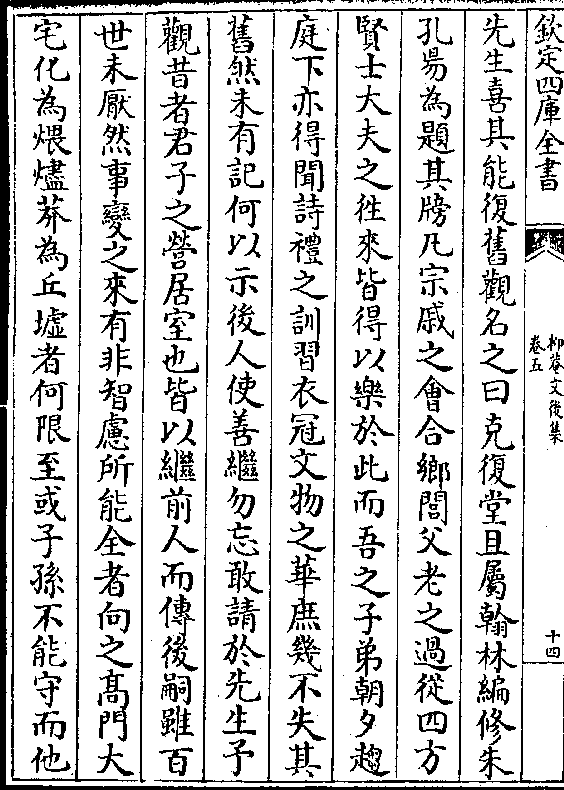 欽定四庫全書
抑菴文後集
卷五
十四
先生喜其能復舊觀名之曰克復堂且屬翰林編修朱
孔昜為題其牓凡宗戚之會合鄉閭父老之過從四方
賢士大夫之徃來皆得以樂於此而吾之子弟朝夕趨
庭下亦得聞詩禮之訓習衣冠文物之華庶幾不失其
舊然未有記何以示後人使善繼勿忘敢請於先生予
觀昔者君子之營居室也皆以繼前人而傳後嗣雖百
世未厭然事變之來有非智慮所能全者向之髙門大
宅化為煨燼莽為丘墟者何限至或子孫不能守而他